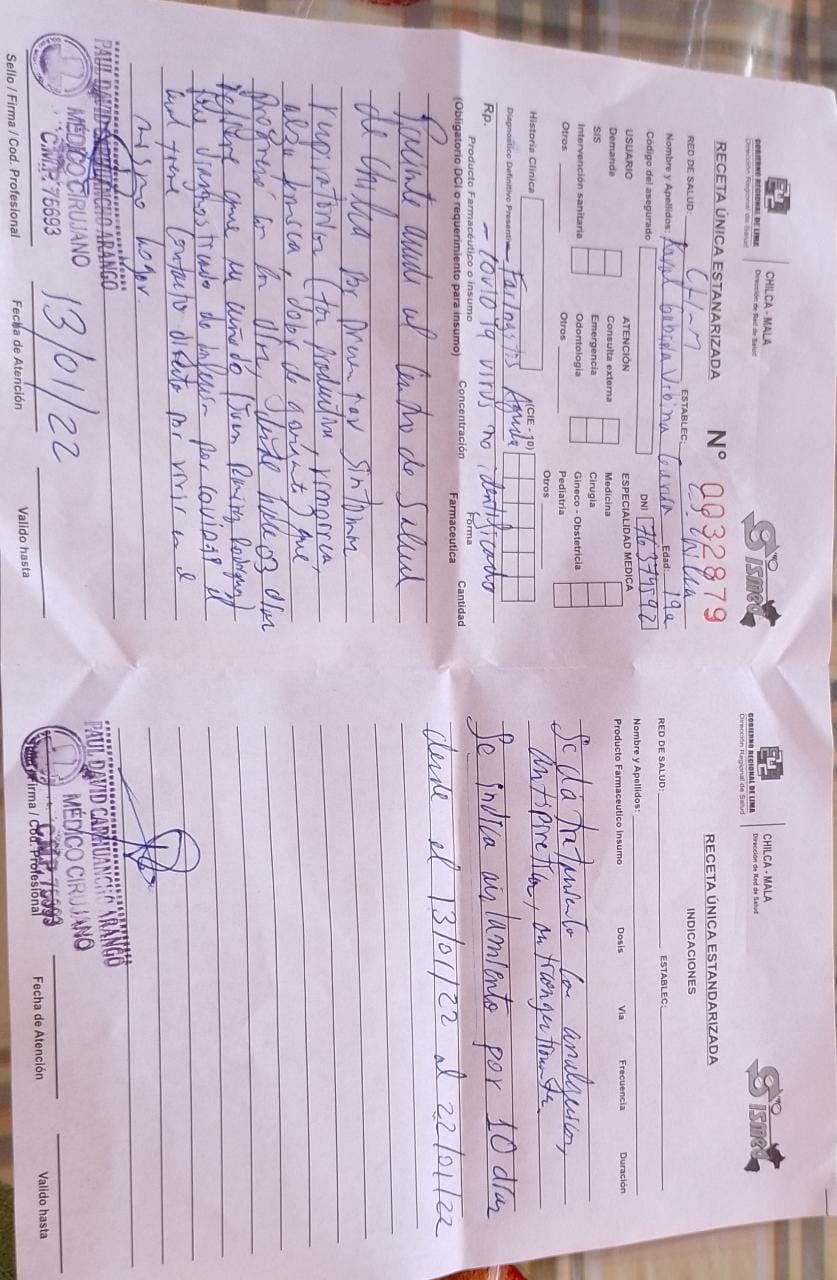 GOBIERNO REGIONAL DE LIMA
Dirección Regional de Salud
CHILCA - MALA
Dirección de Red de Salud
Sismed
RECETA ÚNICA ESTANARIZADA
N° 0032879
RED DE SALUD: CH-M ESTABLEC: C.S. Chilca
Nombre y Apellidos: Gabriela Urbina Garcia Edad: 19a
Código del asegurado DNI 76379592
USUARIO
Demanda
SIS
Intervención sanitaria
Otros
ATENCIÓN
Consulta externa
Emergencia
Odontologia
Otros
ESPECIALIDAD MEDICA
Medicina
Cirugia
Gineco - Obstetricia
Pediatria
Otros
Historia Clinica
(CIE - 10)
Diagnostico Definitivo Presentivo Faringitis Aguda
Rp. - COVID 19 virus no identificado
Producto Farmacéutico o insumo
(Obligatorio DCI o requerimiento para insumo)
Concentración
Forma
Farmaceutica
Cantidad
Paciente acude al Centro de Salud
de Chilca por presentar sintomas
respiratorios (tos productiva, rinorrea,
alza termica, dolor de garganta) que
progresó con los días, desde hace 03 días
refiere que su cuñado (Juan Ramirez Rodriguez)
fue diagnosticado de infección por COVID19 el
cual tiene contacto directo por vivir en el
mismo hogar.
PAUL DAVID CARHUANCHO ARANGO
MÉDICO CIRUJANO
C.M.P. 75693
13/01/22
Sello / Firma / Cod. Profesional
Fecha de Atención
Valido hasta
GOBIERNO REGIONAL DE LIMA
Dirección Regional de Salud
CHILCA - MALA
Dirección de Red de Salud
Sismed
RECETA ÚNICA ESTANDARIZADA
INDICACIONES
RED DE SALUD: ESTABLEC:
Nombre y Apellidos:
Producto Farmaceutico insumo Dosis Via Frecuencia Duración
Se da tratamiento con analgesicos,
antipiretico,
Se indica aislamiento por 10 días
desde el 13/01/22 al 22/01/22
PAUL DAVID CARHUANCHO ARANGO
MÉDICO CIRUJANO
C.M.P. 75693
Sello / Firma / Cod. Profesional
Fecha de Atención
Valido hasta